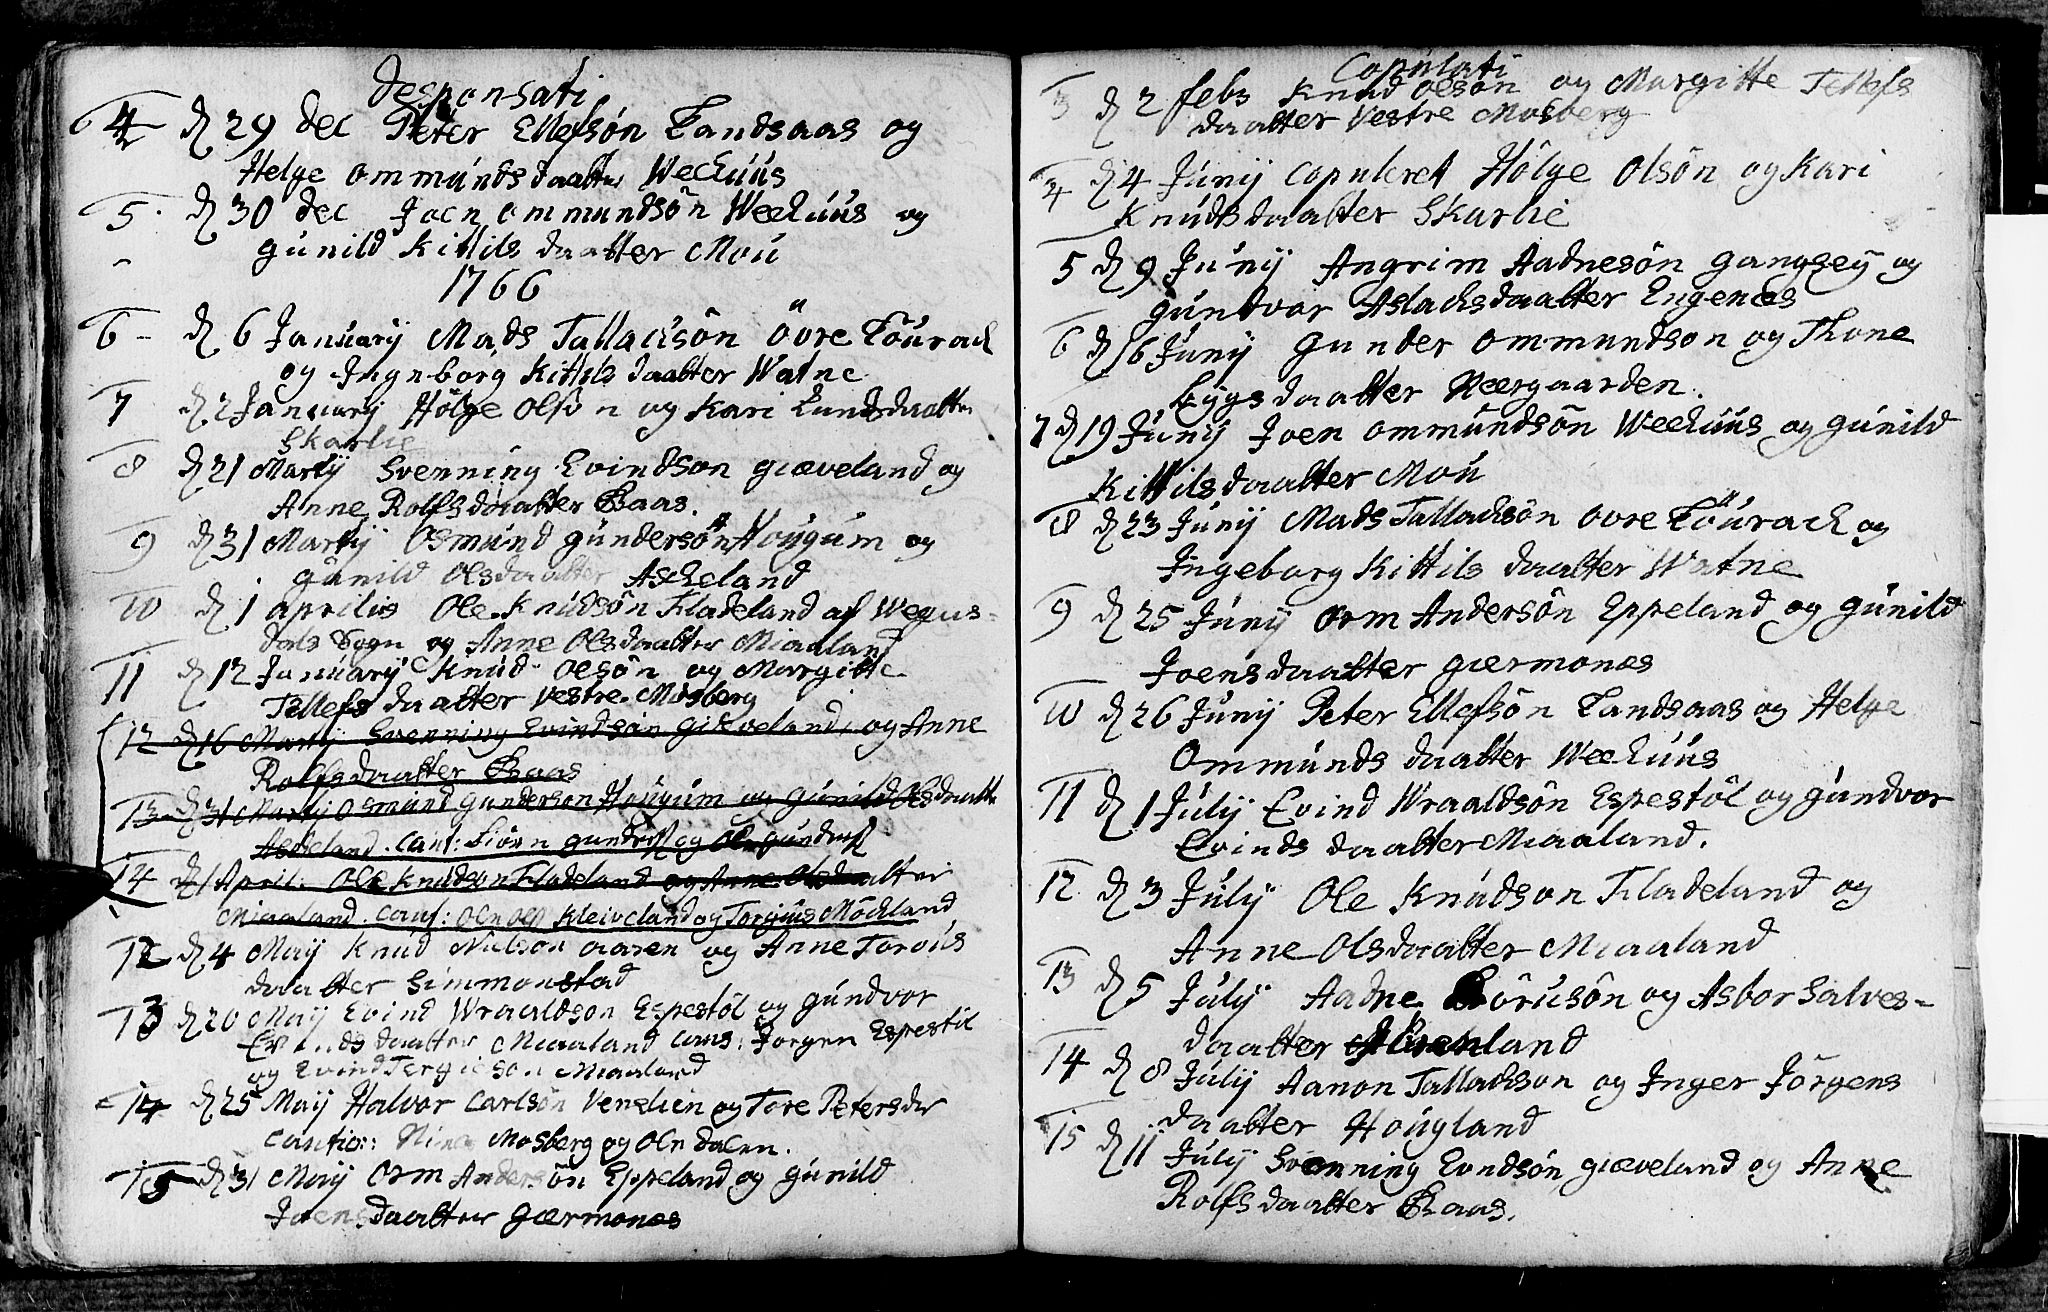 Desponsati
4 d 29 dec Peter Ellefsøn Landsaas og
Helge ommundsdaatter Weehuus
5. d 30 dec Joen ommundsøn Weehuus og
gunild Kittilsdaatter Mou
1766
6 - d 6 January Mads Tallachsøn övre Lourach
og Ingeborg Kittilsdaatter Watne
7 d 2 January Hölge Olsøn og Kari Lundsdaatter
Skarlie
8 d 21 Martij Svenning Evindson giæveland og
Anne Rolfsdaatter Baas.
9 d 31 Martij Osmund gundersøn Hougum og
gunild Olsdaatter Ascheland
10 d 1 aprilis Ole Knudsøn Fladeland af Wegus-
dals Sogn og Anne Olsdaatter Miaaland
11 d 12 January Knud Olsøn og Margitte
Tellefsdaatter Vestre Mosberg
12 d 16 Martij Svenning Evindsøn giæveland, og Anne
Rolfsdaatter Baas
13 d 31 Martij Osmund gunderson Hougum og gunild Olsdaatter
Ascheland. Caut: og Ole
14 d 1 April: Ole Knudson Fladeland og Anne Olsdaatter
Miaaland. Caut: Ole Kleiveland og Torjuus Möchland
12 d 4 Maij Knud Nielson aasen og Anne Torvus
daatter Simmonstad
13 d 20 Maij Evind Wraaldson Espestöl og gundvor
Evindsdaatter Miaaland Caus: Jorgen Espestöl
og Evind Tergieson Miaaland
14 d 25 Maij Halvor Carlsøn Venelien og Tore Petersdr
Cautio: Mosberg og Ole Dalen.
15 d 31 Maij Orm Andersøn Eppeland og gunild
Joensdaatter giermonæs
Copulati
3 d 2 febr Knud Olsøn og Margitte Tellefs
daatter Vestre Mosberg
4 d 4 Junij Copuleret Hölge Olsön og Kari
Knudsdaatter Skarlie
5 d 9 Junij Angrim Aadnesön gangsey og
gundvor Aslachsdaatter Engenæs
6 d 16 Junij Gunder ommundson og Thone
Lygsdaatter Nærgaarden.
7 d 19 Junij Joen ommundsön Weehuus og gunild
Kittilsdaatter Mou
8 d 23 Junij Mads Tallachsön ovre Löurach og
Ingeborg Kittilsdaatter Watne
9 d 25 Junij Orm Andersön Eppeland og gunild
Joensdaatter giermonæs
10 d 26 Junij Peter Ellefsön Landsaas og Helge
Ommundsdaatter Weehuus
11 d 1 Julij Evind Wraaldsön Espestöl og gundvor
Evindsdaatter Miaaland.
12 d 3 Julij Ole Knudson Fladeland og
Anne Olsdaatter Miaaland
13 d 5 Julij Aadne og Asbor Salves-
daatter
14 d 8 Julij Aanon Tallachson og Inger Jörgens
daatter Hougland
15 d 11 Julij Svenning Evndsön giæveland og Anne
Rolfsdaatter Baas.